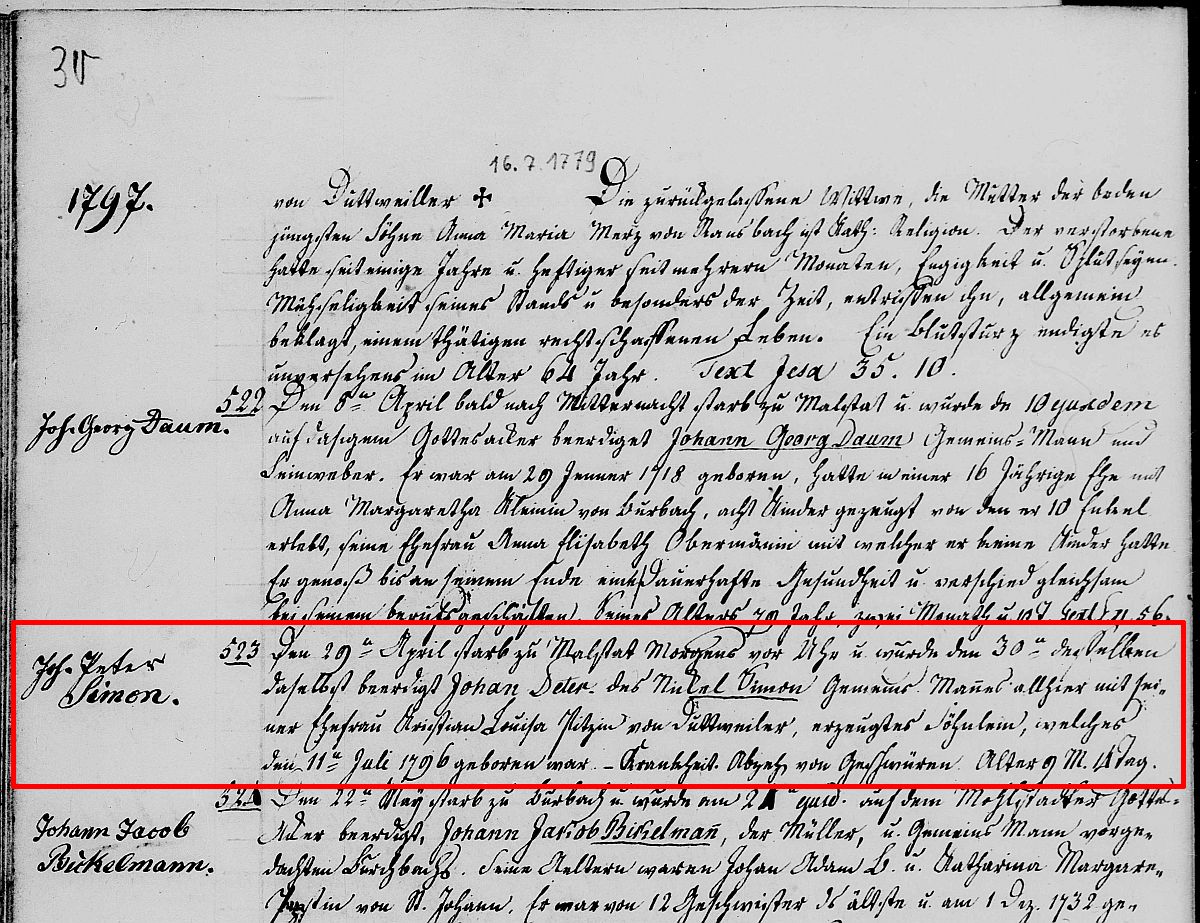 30
16.7.1779
1797.
von Duttweiller ✝ Die zurückgelassene Wittwe, die Mutter der beden
jüngsten Söhne Anna Maria Merz von Ransbach ist Kath: Religion. Der verstorbene
hatte seit einige Jahre u. heftiger seit mehrern Monaten, Engigkeit u.
Mühseligkeit seines Stands u besonders der Zeit, entrissen ihn, allgemein
beklagt, einem thätigen rechtschaffenen Leben. Ein Blutsturz endigte es
unversehens im Alter 64 Jahr. Text Jesa 35. 10.
Joh. Georg Daum.
522 Den 8n April bald nach Mitternacht starb zu Malstat u. wurde de 10 ejusdem
auf dasigem Gottesacker beerdiget Johann Georg Daum Gemeins-Mann und
Leinweber. Er war am 29 Jenner 1718 geboren, hatte in einer 16 Jährige Ehe mit
Anna Margaretha Kleinin von Burbach, acht Kinder gezeugt von den er 10 Enkel
erlebt, seine Ehefrau Anna Elisabeth Obermänin mit welcher er keine Kinder hatte
Er genoß bis an seinem Ende eine Dauerhafte Gesundheit u. verschied gleichsam
bei seinem berufsgeschäften. Seines Alters 79 Jahr, zwei Monath u. 56.
Joh. Peter
Simon.
523 Den 29n April starb zu Malstat Morgens vor Uhr u. wurde den 30n desselben
daselbst beerdigt Johan Peter. des Nickel Simon Gemeins Mannes allhier mit sei-
ner Ehefrau Kristian Louisa Pitzin von Duttweiler, erzeugtes Söhnlein, welches
den 11n Juli 1796 geboren war - Krankheit. Abzeh. von Geschwüren. Alter 9 M. Tag.
Johann Jacob
Bickelmann.
524 Den 22n May starb zu Burbach u. wurde am 24n quid. auf dem Mohlstadter Gottes-
Acker beerdigt, Johann Jacob Bickelmañ, der Müller, u. Gemeins Mann vorge-
dachten Burchbachs. Seine Aeltern waren Johan Adam B. u. Katharina Margare-
von St. Johann. Er war von 12 Geschwister ds ältste u. am 1 Dez. 1732 ge-